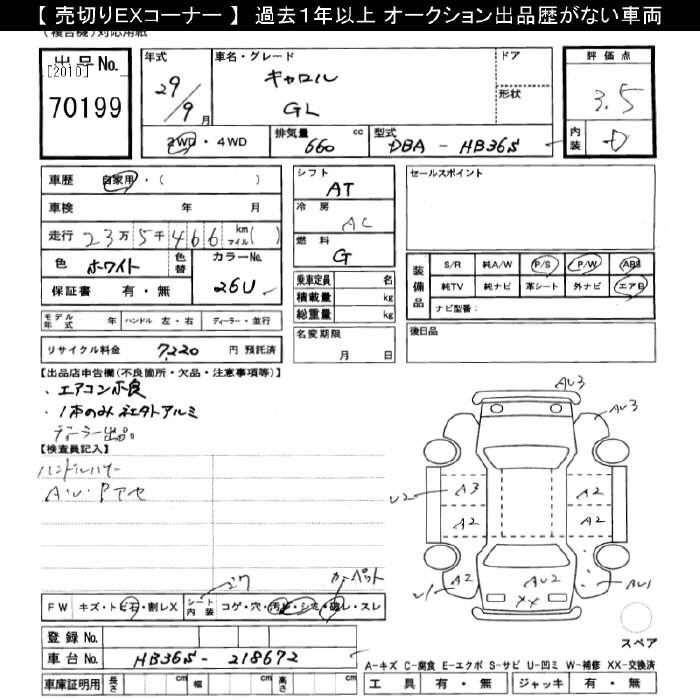 【 売切りEXコーナー 】 過去１年以上 オークション出品歴がない車両
(複合機)対応用紙
出品No. [2010] 70199
年式 29/9月
車名・グレード キャロル GL
ドア
形状
評価点 3.5
内装 D
2WD・4WD
排気量 660 cc
型式 DBA - HB36S
車歴 自家用・( )
車検 年 月
走行 23万5千466 km マイル( )
色 ホワイト 色替 カラーNo. 26U
保証書 有・無
シフト AT
冷房 AC
燃料 G
乗車定員 名
積載量 kg
総重量 kg
セールスポイント
装備品 S/R 純A/W P/S P/W ABS
純TV 純ナビ 革シート 外ナビ エアB
ナビ型番：
モデル年式 年 ハンドル 左・右 ディーラー・並行
名変期限 月 日
後日品
リサイクル料金 7,220 円 預託済
【出品店申告欄(不良箇所・欠品・注意事項等)】
・エアコン不良
・1本のみ社外アルミ
ディーラー出品。
【検査員記入】
ハンドルハゲ
A・U・Pアセ
AU3
AU3
U2 A3 A2
A2 A2
U1 A2 AU2 AU1
XX
コゲ
カーペット
FW キズ・トビ石・割レX シート内装 コゲ・穴・汚レ・シミ・破レ・スレ
スペア
登録No.
車台No. HB36S - 218672
A-キズ C-腐食 E-エクボ S-サビ U-凹ミ W-補修 XX-交換済
車庫証明用 長さ cm 幅 cm 高さ cm
工具 有・無 ジャッキ 有・無